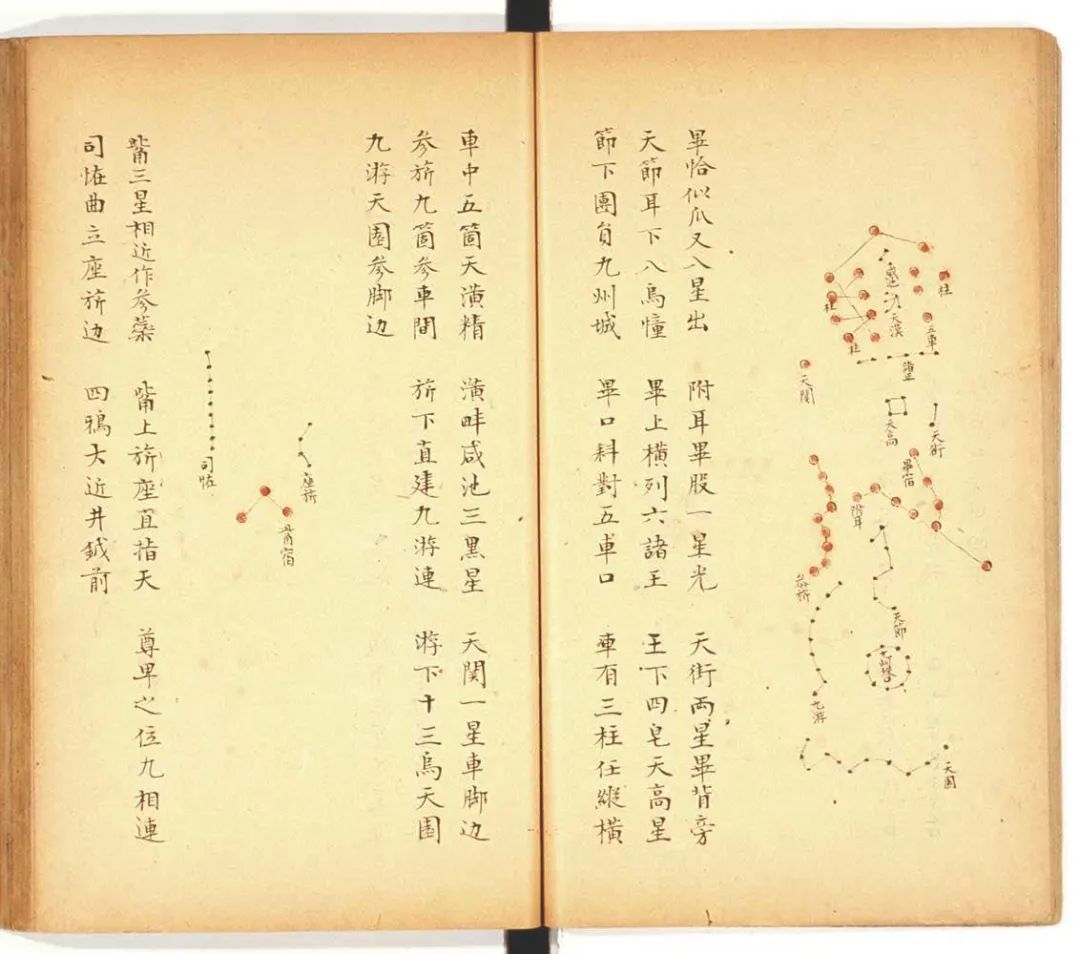 咸池
天潢
柱
柱
柱
五車
諸王
天関
天高
天街
畢宿
附耳
参旂
天節
九游
天園
畢恰似爪叉八星出 附耳畢股一星光 天街両星畢背旁
天節耳下八烏幢 畢上横列六諸王 王下四皂天高星
節下團貟九州城 畢口料對五車口 車有三柱任縱横
車中五箇天潢精 潢畔咸池三黒星 天関一星車脚边
参旂九箇参車間 旂下直建九游連 游下十三烏天園
九游天園参脚边
座旂
觜宿
司恠
觜三星相近作参蘂 觜上旂座直指天 尊卑之位九相連
司恠曲立座旂边 四鴉大近井鉞前